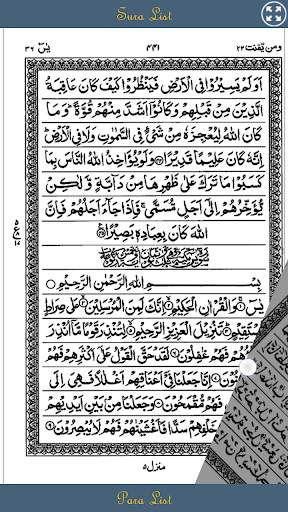 Sura List
ومن يقنت ٢٢
٤٤١
يٰسٓ ٣٦
اَوَلَمْ يَسِيْرُوْا فِي الْاَرْضِ فَيَنْظُرُوْا كَيْفَ كَانَ عَاقِبَةُ
الَّذِيْنَ مِنْ قَبْلِهِمْ وَكَانُوْٓا اَشَدَّ مِنْهُمْ قُوَّةً ؕ وَمَا
كَانَ اللّٰهُ لِيُعْجِزَهٗ مِنْ شَيْءٍ فِي السَّمٰوٰتِ وَلَا فِي الْاَرْضِ ؕ
اِنَّهٗ كَانَ عَلِيْمًا قَدِيْرًا ۝ وَلَوْ يُؤَاخِذُ اللّٰهُ النَّاسَ بِمَا
كَسَبُوْا مَا تَرَكَ عَلٰى ظَهْرِهَا مِنْ دَآبَّةٍ وَّلٰكِنْ
يُّؤَخِّرُهُمْ اِلٰٓى اَجَلٍ مُّسَمًّى ۚ فَاِذَا جَآءَ اَجَلُهُمْ فَاِنَّ
اللّٰهَ كَانَ بِعِبَادِهٖ بَصِيْرًا ۝
بِسْمِ اللّٰهِ الرَّحْمٰنِ الرَّحِيْمِ
يٰسٓ ۝ وَالْقُرْاٰنِ الْحَكِيْمِ ۝ اِنَّكَ لَمِنَ الْمُرْسَلِيْنَ ۝ عَلٰى صِرَاطٍ
مُّسْتَقِيْمٍ ۝ تَنْزِيْلَ الْعَزِيْزِ الرَّحِيْمِ ۝ لِتُنْذِرَ قَوْمًا مَّآ اُنْذِرَ
اٰبَآؤُهُمْ فَهُمْ غٰفِلُوْنَ ۝ لَقَدْ حَقَّ الْقَوْلُ عَلٰٓى اَكْثَرِهِمْ فَهُمْ
اِنَّا جَعَلْنَا فِيْٓ اَعْنَاقِهِمْ اَغْلٰلًا فَهِيَ اِلَى
فَهُمْ مُّقْمَحُوْنَ ۝ وَجَعَلْنَا مِنْۢ بَيْنِ اَيْدِيْهِمْ
خَلْفِهِمْ سَدًّا فَاَغْشَيْنٰهُمْ فَهُمْ لَا يُبْصِرُوْنَ ۝
منزل ٥
Para List